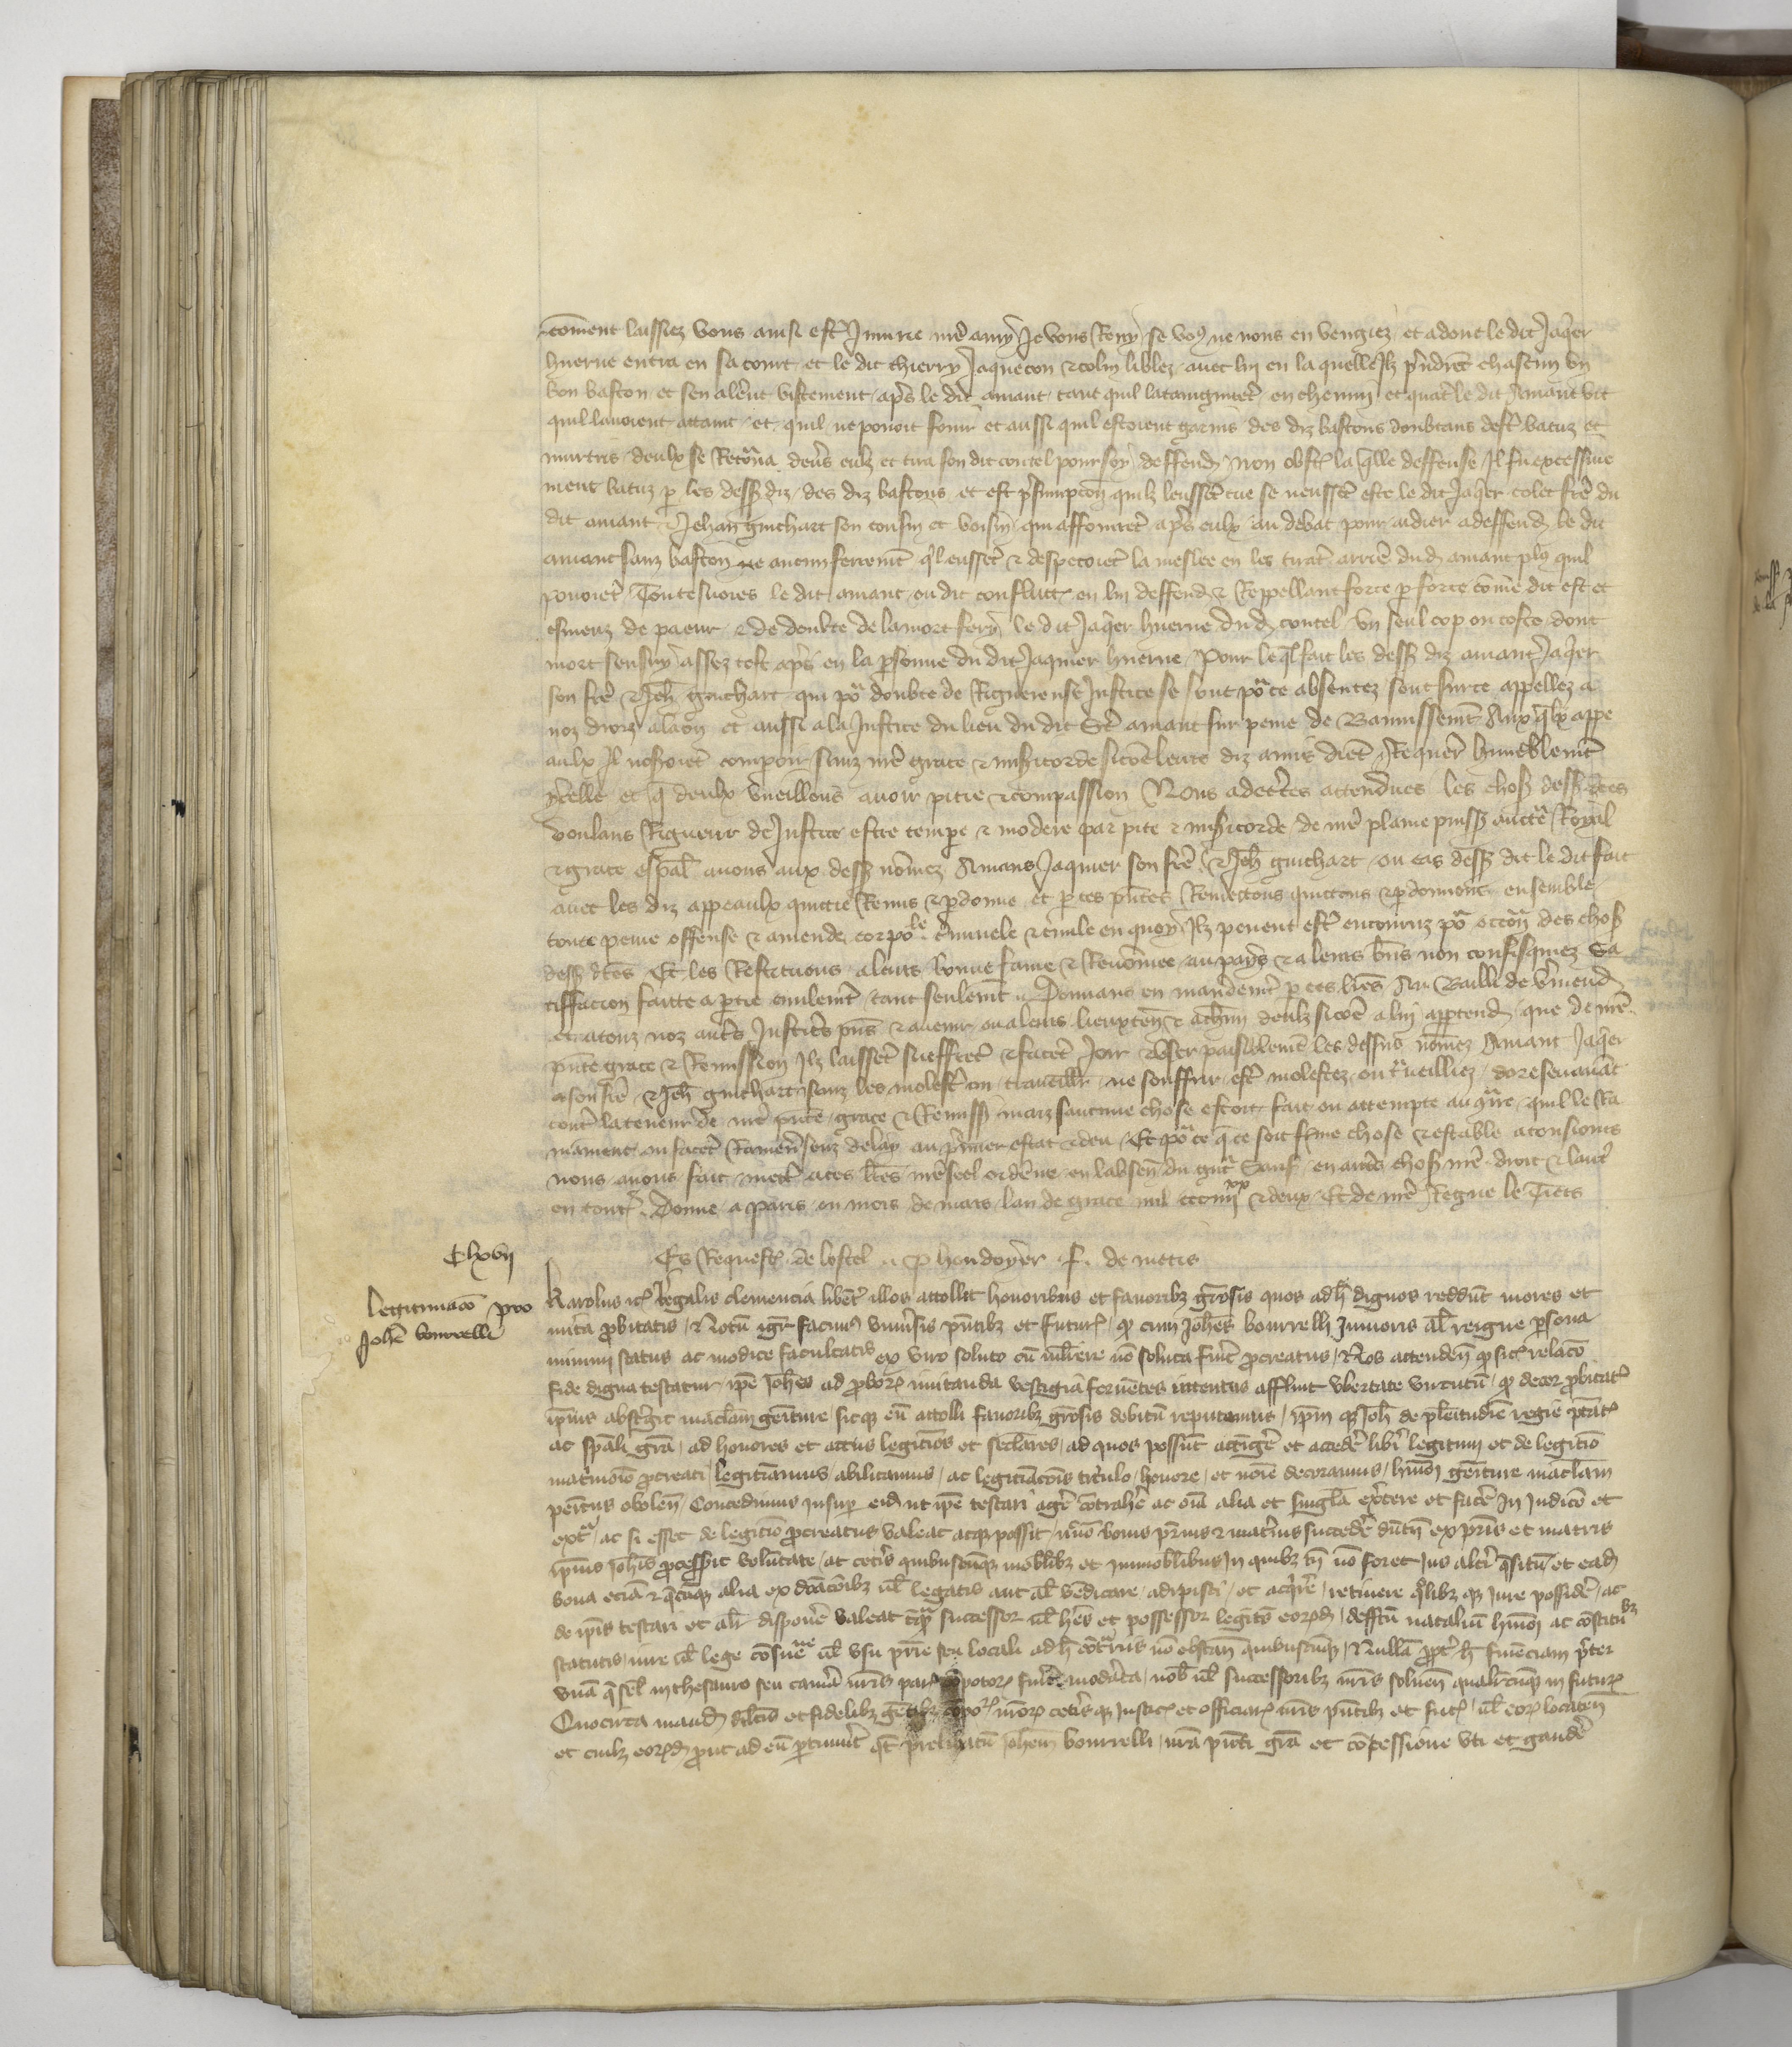 coment laissiez vous ainsi estre Iniurie mon amy Je vous Reny se vous ne nous en vengiez et adont le dit Jaquier
huerne entra en sa court et le dit thierry Jaquecon & colin liblez avec lui en la quelle Ilz prindrent chascun un
bon baston et sen alerent vistement apres le dit amant tant quil lataingnirent en chemin et quant le dit Amant vit
quil lavoient attaint et quil ne povoit fouir et aussi quil estoient garnis des diz bastons doubtans destre batuz et
murtris deulx se Retorna devers eulx et tira son dit coutel pour soy deffendre non obstant la quelle deffense Il fu excessive
ment batuz par les dessus diz des diz bastons et est presumpcion quilz leussent tue se neussent este le dit Jaquier colet frere du
dit amant & Jehan guichart son cousin et voisin qui assouvirent apres eulx au debat pour aidier a deffendre le dit
amant sanz baston ne aucun ferrement quil eussent & despecoient la meslee en les tirant arriere dudit amant plus quil
povoient Toutesvoies le dit amant ou dit conflict en lui deffendant & Reppellant force par force comme dit est et
esmeuz de paeur & de doubte de la mort fery le dit Jaquier huerne dudit coutel un seul cop ou coste dont
mort sensuy assez tost apres en la personne du dit Jaquier huerne Pour le quel fait les dessus diz amant Jaquier
son frere & Jehan guichart qui pour doubte de Riguereuse Justice se sont pour ce absentez sont sur ce appellez a
noz droiz a laon et aussi a la Justice du lieu du dit Saint amant sur peine de Bannissement Aux quelx appe
aulx Il nosoient comparoir sanz nostre grace & misericorde si comme leurs diz amis dient Requerans humblement
ycelle et que deulx vueillons avoir pitie & compassion Nous adecertes attendues les choses dessus dictes
voulans Rigueur de Justice estre tempree & moderee par pite & misericorde de nostre plaine puissance auctorite Royal
& grace especial avons aux dessus nommez Amans Jaquier son frere & Jehan guichart ou cas dessus dit le dit fait
avec les diz appeaulx quittie Remis & pardonne et par ces presentes Remettons quittons & pardonnons ensemble
toute peine offense & amende corporele criminele & civile en quoy Ilz pevent estre encouruz pour occasion des choses
dessus dictes Et les Restituons a leurs bonne fame & Renommee au pays & a leurs biens non confisquiez Sa
tiffacion faitte a partie civilement tant seulement Donnans en mandement par ces lettres Au Bailli de vermendois
et a touz noz autres Justiciers presens & avenir ou a leurs lieuxtenans & a chascun deulz si comme a lui appartendra que de nostre
presente grace & Remission Ilz laissent sueffrent & facent Joir & user paisiblement les dessus nommez Amant Jaquier
son frere & Jehan guichart sanz les molester ou travailler ne souffrir estre molestez ou travailliez doresenavant
contre la teneur de nostre presente grace & Remission mais saucune chose estoit fait ou attempte au contraire quil le Ra
mainent ou facent Ramener sanz delay au premier estat & deu Et pour ce que ce soit ferme chose & estable a tousiours
nous avons fait mettre a ces lettres nostre seel ordene en labsence du grant Sauf en autres choses nostre droit & lautrui
en toutes Donne a Paris ou mois de mars lan de grace mil ccc iiiixx & deux Et de nostre Regne le Tiers
Es Requestes de lostel .. P hondoyer . f. de metis
Clxvii
Legitimacio pro
Johanne bourrelli
Karolus etc Regalis clemencia libenter illos attollit honoribus et favoribus graciosis quos ad hoc dignos reddunt mores et
merita probitatis Notum igitur facimus universis presentibus et futuris quod cum Johannes bourrelli Junioris persona
minimi status ac modice facultatis ex viro soluto cum muliere non soluta fuerit procreatus Nos attendentes quod sicut relacio
fide digna testatur ipse Johannes ad proborum imitanda vestigia ferventes intentus affluit ubertate virtutum quod decor probitatis
ipsius abstergit maculam geniture sicque eum attolli favoribus graciosis debitum reputamus ipsum que Johannem de plenitudine regie potestatis
ac speciali gracia ad honores et actus legitimos et seculares ad quos possunt attingere et accedere liberi legitimi et de legitimo
matrimonio procreati legitimamus abilitamus ac legitimacionis titulo honore et nomine decoramus huiusmodi geniture maculam
penitus abolentes Concedimus insuper eidem ut ipse testari agere contrahere ac omnia alia et singula exercere et facere In Judicio et
extra ac si esset de legitimo procreatus valeat atque possit necnon bonis paternis & maternis succedere dumtamen ex patris et matris
ipsius Johannis processerit voluntate ac ceteris quibuscunque mobilibus et immobilibus In quibus tamen non foret Ius alteri quesitum et eadem
bona eciam & quecunque alia ex donacionibus vel legatis aut alias vendicare adipisci et acquirere retinere quomodolibet que iure possidere ac
de ipsis testari et alias disponere valeat tamquam successor vel heres et possessor legitimus eorumdem deffectu natalium huiusmodi ac constitucionibus
statutis iure vel lege consuetudine vel usu patrie seu locali ad hoc contrariis non obstantibus quibuscunque Nulla propter hoc financiam preter
unam que semel in thesauro seu camera nostris par computorum fuerit moderata nobis vel successoribus nostris solvenda qualitercunque in futurum
Quocirca mandamus dilectis et fidelibus gentibus compotorum nostrorum ceteris que Justiciariis et officiariis nostris presentibus et futuris vel eorum locatenentibus
et cuilibet eorumdem prout ad eum pertinuerit quatinus prelibatum Johannem bourrelli nostra presenti gracia et concessione uti et gaudere